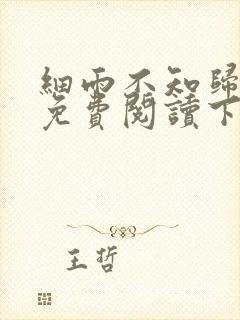 細雨不知歸
免費閱讀下
王哲